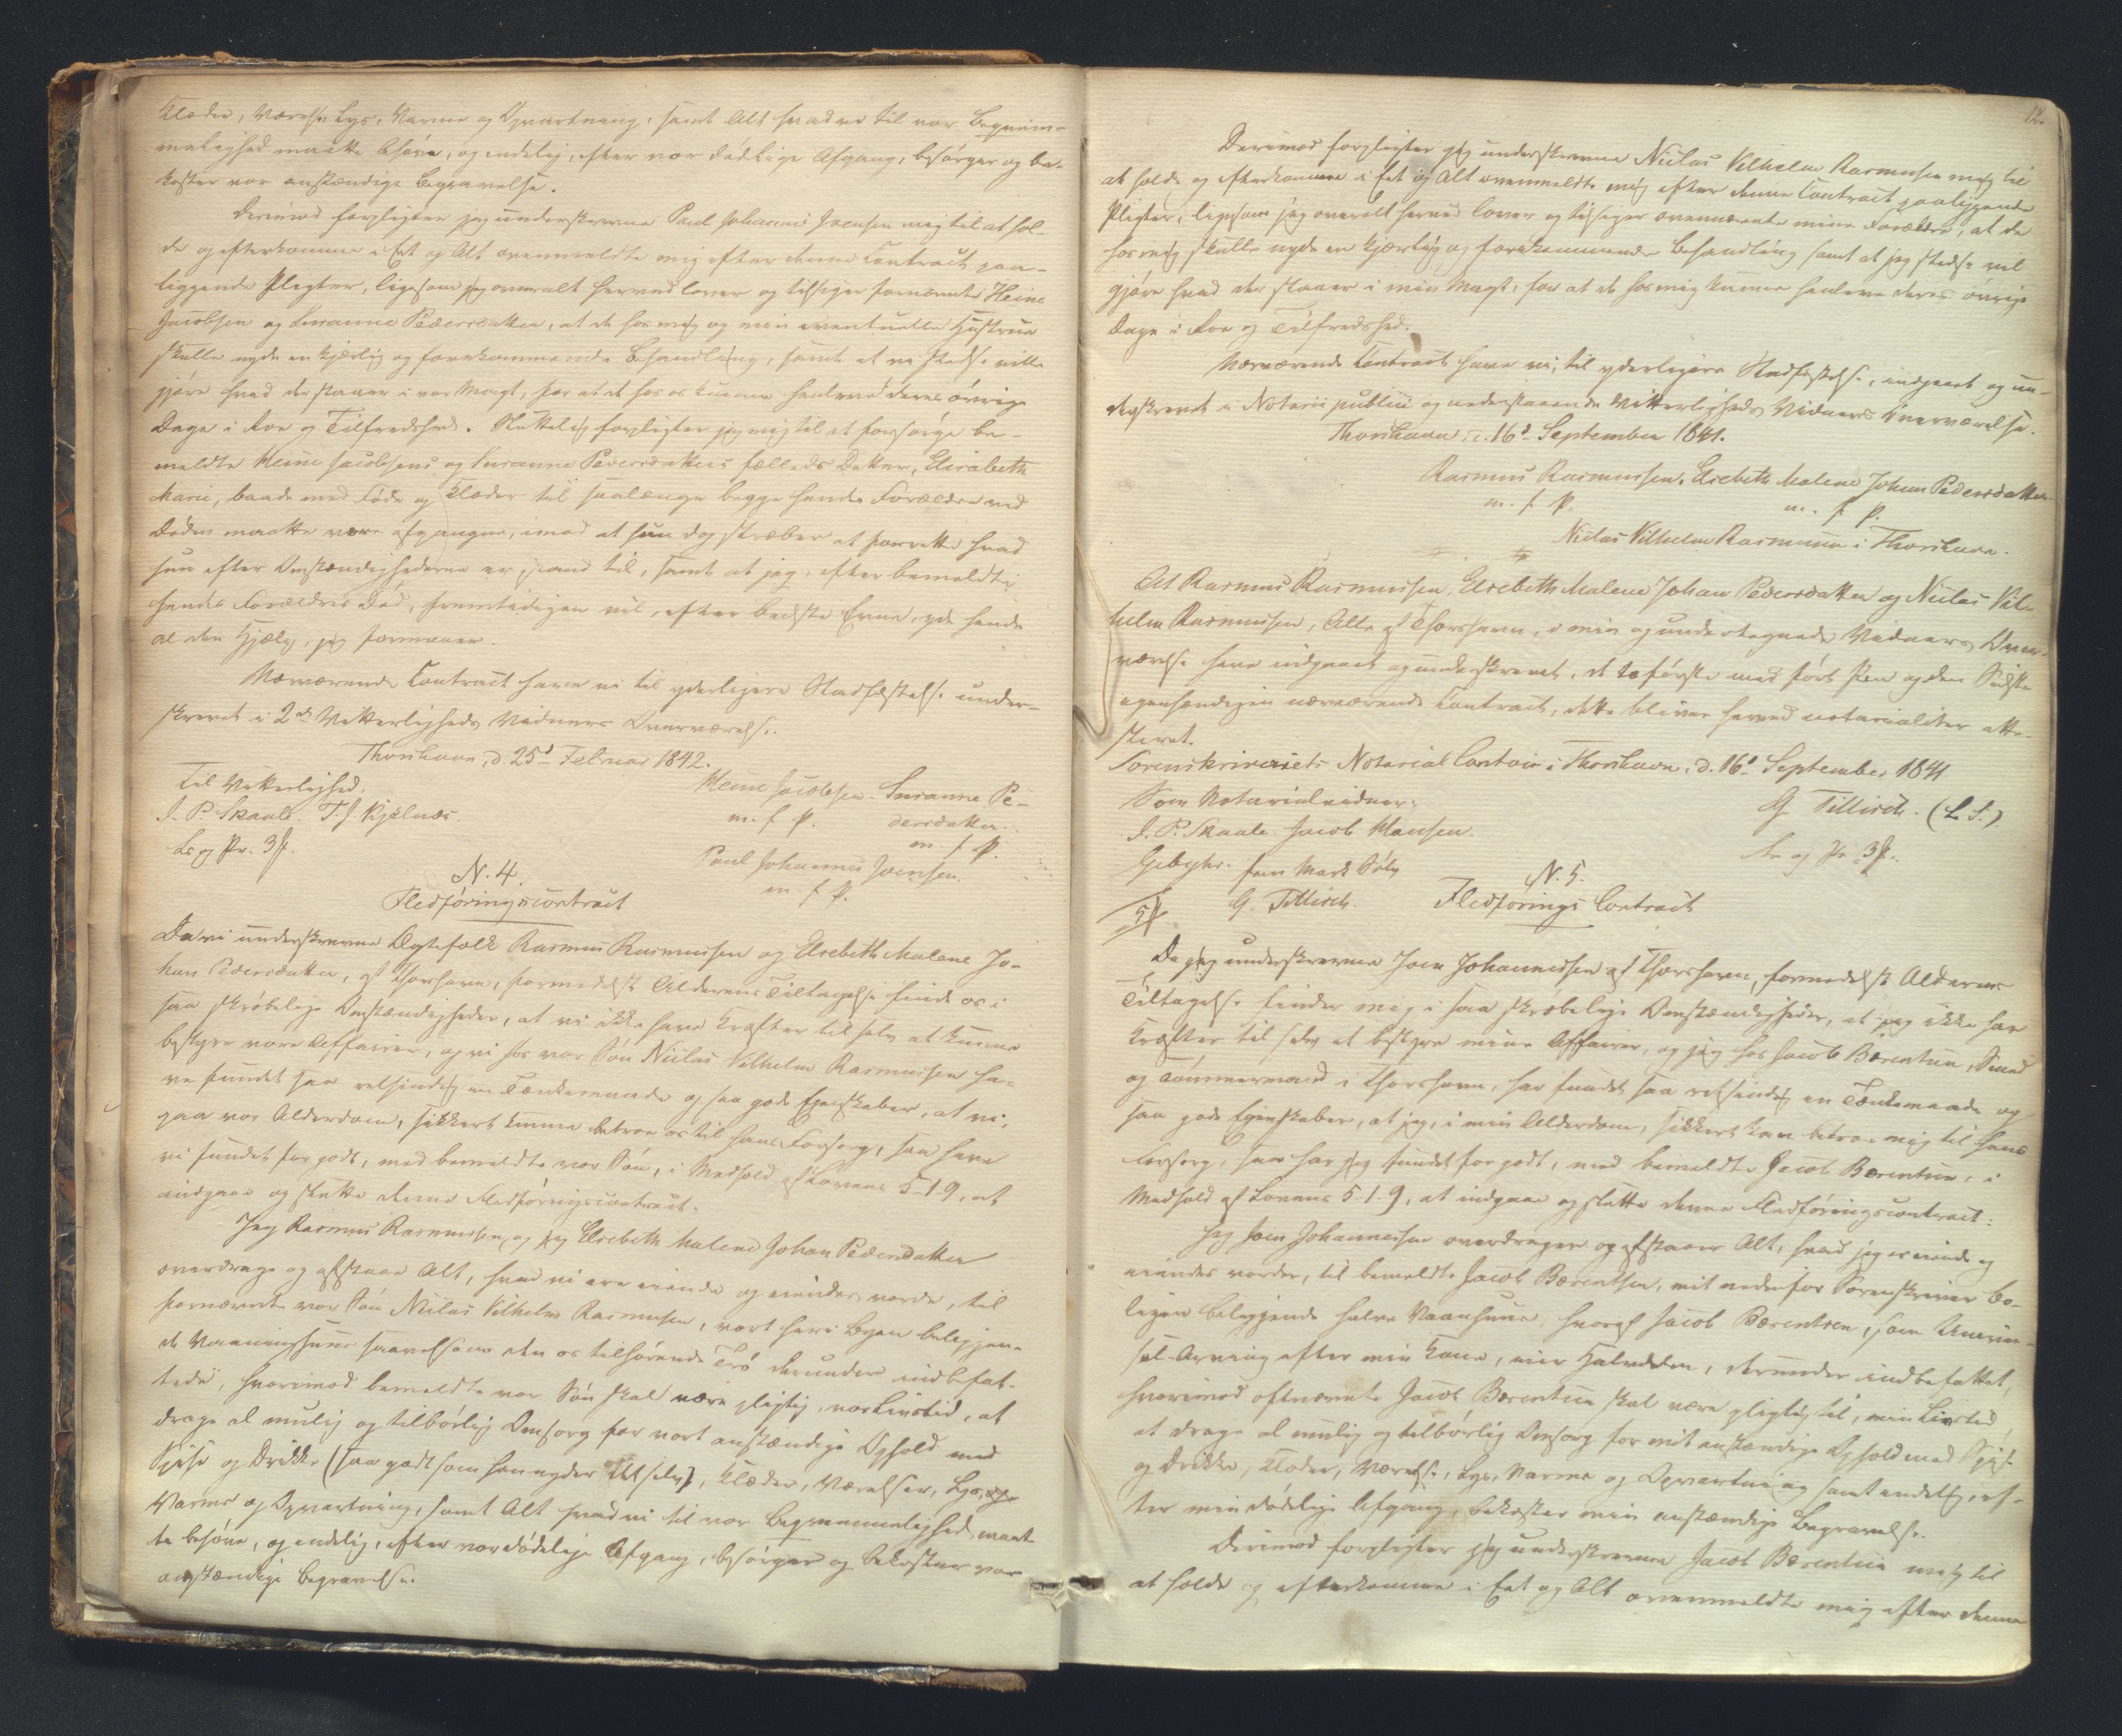 Klæder, Værelse, Lys, Varme og Opvartning, samt Alt hvad vi til vor Beqvem-
melighed maatte behøve, og endelig, efter vor dødelige Afgang, besørger og be-
koster vor anstændige Begravelse.
Derimod forpligter jeg underskrevne Poul Johannes Joensen mig til at hol-
de og efterkomme i Eet og Alt ovenmeldte mig efter denne Contract paa-
liggende Pligter, ligesom jeg overalt herved lover og tilsiger fornævnte Heine
Jacobsen og Susanne Pedersdatter, at de hos mig og min eventuelle Hustrue
skulle nyde en kjærlig og forekommende Behandling, samt at vi stedse ville
gjøre hvad der staaer i vor Magt, for at de hos os kunne henleve deres øvrige
Dage i Roe og Tilfredshed. Sluttelig forpligter jeg mig til at forsørge be-
meldte Heine Jacobsens og Susanne Pedersdatters fælleds Datter, Elisabeth
Marie, baade med Føde og Klæder til saalænge begge hendes Forældre ved
Døden maatte være afgangne, imod at hun dog stræber at forrette hvad
hun efter Omstændighederne er istand til, samt at jeg, efter bemeldte
hendes Forældres Død, fremtidigen vil, efter bedste Evne, yde hende
al den Hjælp, jeg formaaer.
Nærværende Contract have vi til yderligere Stadfæstelse under-
skrevet i 2de Vitterligheds Vidners Overværelse.
Thorshavn, d. 25d Februar 1842.
Til Vitterlighed. Heine Jacobsen - Susanne Pe-
J. P. Skaale. T. J. Kjølnæs. m. f. P. dersdatter.
Ls og Pr. 3ß. m. f. P.
Poul Johannes Joensen.
m. f. P.
N. 4.
Fledføringscontract
Da vi underskrevne Ægtefolk Rasmus Rasmussen og Elsebeth Malene Jo-
han Pedersdatter, af Thorshavn, formedelst Alderens Tiltagelse finde os i
saa skrøbelige Omstændigheder, at vi ikke have Kræfter til selv at kunne
bestyre vore Affairer, og vi hos vor Søn Niclas Vilhelm Rasmussen ha-
ve fundet saa retsindig en Tænkemaade og saa gode Egenskaber, at vi,
paa vor Alderdom, sikkert kunne betroe os til hans Forsorg, saa have
vi fundet for godt, med bemeldte vor Søn, i Medhold af Lovens 5-1-9, at
indgaae og slutte denne Fledføringscontract.
Jeg Rasmus Rasmussen, og jeg Elsebeth Malene Johan Pedersdatter
overdrage og afstaae Alt, hvad vi ere eiende og eiendes vorde, til
fornævnte vor Søn Niclas Vilhelm Rasmussen, vort her i Byen beliggen-
de Vaaningshuus saavelsom den os tilhørende Trø derunder indbefat-
tede, hvorimod bemeldte vor Søn skal være pligtig, vor Livstid, at
drage al mulig og tilbørlig Omsorg for vort anstændige Ophold med
Spise og Drikke (saa godt som han nyder det selv), Klæder, Værelser, Lys, og
Varme og Opvartning, samt Alt hvad vi til vor Beqvemmelighed maat-
te behøve, og endelig, efter vor dødelige Afgang, besørger og bekoster vor
anstændige Begravelse.
12.
Derimod forpligter jeg underskrevne Niclas Vilhelm Rasmussen mig til
at holde og efterkomme i Eet og Alt ovenmeldte mig efter denne Contract paaliggende
Pligter, ligesom jeg overalt herved lover og tilsiger ovennævnte mine Forældre, at de
hos mig skulle nyde en kjærlig og forekommende Behandling samt at jeg stedse vil
gjøre hvad der staaer i min Magt, for at de hos mig kunne henleve deres øvrige
Dage i Roe og Tilfredshed.
Nærværende Contract have vi, til yderligere Stadfæstelse, indgaaet og un-
derskrevet i Notarii publici og nedenstaaende Vitterligheds Vidners Overværelse.
Thorshavn, d. 16d September 1841.
Rasmus Rasmussen. Elsebeth Malene Johan Pedersdatter
m. f. P. m. f. P.
Niclas Vilhelm Rasmussen i Thorshavn.
At Rasmus Rasmussen, Elsebeth Malene Johan Pedersdatter og Niclas Vil-
helm Rasmussen, Alle af Thorshavn, i min og undertegnede Vidners Over-
værelse have indgaaet og underskrevet, de to første med ført Pen og den Sidste
egenhændigen nærværende Contract, dette bliver herved notarialiter atte-
steret.
Sorenskriveriets Notarial Contoir i Thorshavn, d. 16d September 1841
Som Notarialvidner: G. Tillisch. (L. S.)
J. P. Skaale. Jacob Hansen. Ls og Pr. 3ß.
Gebyhr. fem Mark Sølv
5ß G. Tillisch.
N. 5.
Fledførings Contract
Da jeg underskrevne Joen Johannesen af Thorshavn, formedelst Alderens
Tiltagelse finder mig i saa skrøbelige Omstændigheder, at jeg ikke har
Kræfter til selv at bestyre mine Affairer, og jeg hos Jacob Bærentsen, Smed
og Tømmermand i Thorshavn, har fundet saa retsindig en Tænkemaade og
saa gode Egenskaber, at jeg, i min Alderdom, sikkert kan betroe mig til hans
Forsorg, saa har jeg fundet for godt, med bemeldte Jacob Bærentsen, i
Medhold af Lovens 5-1-9, at indgaae og slutte denne Fledføringscontract:
Jeg Joen Johannesen overdrager og afstaaer Alt, hvad jeg er eiende og
eiendes vorder, til bemeldte Jacob Bærentsen, mit nedenfor Sorenskriver Bo-
ligen beliggende halve Vaanhuus, hvoraf Jacob Bærentsen, som Univer-
sal-Arving efter min Kone, eier Halvdelen, derunder indbefattet,
hvorimod oftnævnte Jacob Bærentsen skal være pligtig til, min Livstid,
at drage al mulig og tilbørlig Omsorg for mit anstændige Ophold med Spise
og Drikke, Klæder, Værelse, Lys, Varme og Opvartning samt endelig, ef-
ter min dødelige Afgang, bekoster min anstændige Begravelse.
Derimod forpligter jeg underskrevne Jacob Bærentsen mig til
at holde og efterkomme i Eet og Alt ovenmeldte mig efter denne